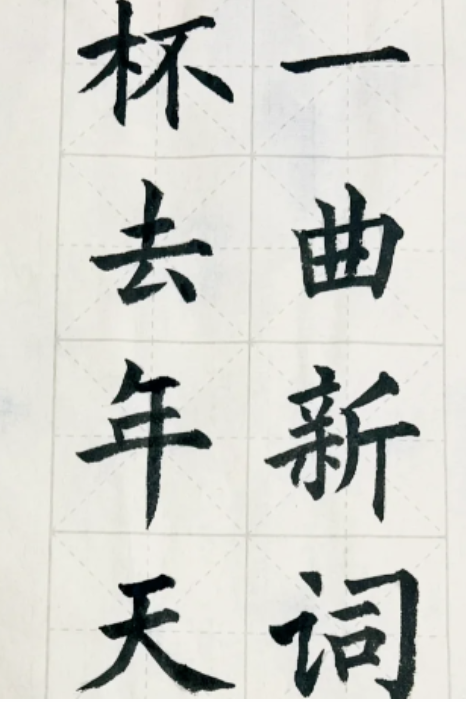 一曲新词
杯去年天